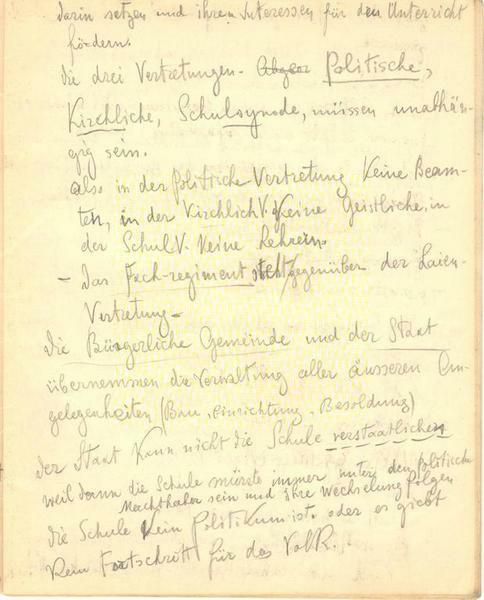 darin setzen und ihrem Interessen für den Unterricht
fördern.
die drei Vertretungen - Politische,
Kirchliche, Schulsynode, müssen unabhän-
gig sein.
also in der politische Vertretung Keine Beam-
ten, in der KirchlichV. Keine Geistliche, in
der SchulV. Keine Lehrern
- Das Fach-regiment stellt gegenüber der Laien-
Vertretung -
die Bürgerliche Gemeinde und der Staat
übernemmen die Verwaltung aller äusseren An-
gelegenheiten (Bau, Einrichtung, Besoldung)
der Staat Kann nicht die Schule verstaatlichen
weil dann die Schule müsste immer unter dem Politische
Machthaber sein und ihre Wechselung folgen
die Schule Kein Politikum ist. oder es giebt
Kein Fortschritt für das Volk.